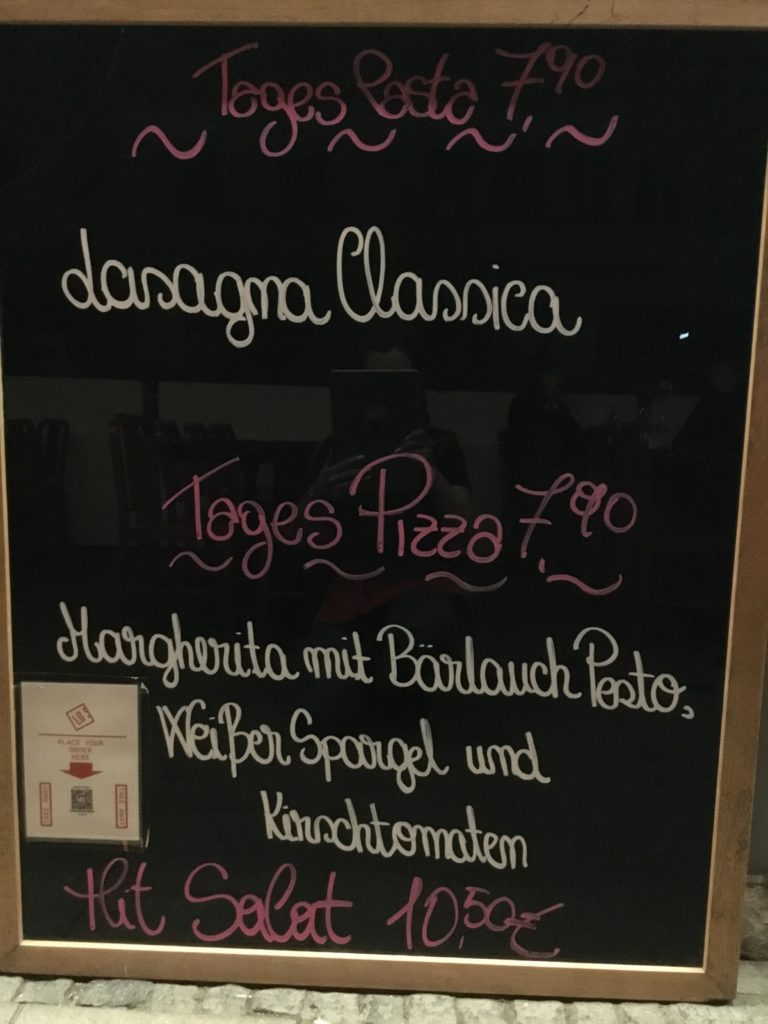 Tages Pasta 7,90
Lasagna Classica
Tages Pizza 7,90
Margherita mit Bärlauch Pesto,
Weißer Spargel und
Kirschtomaten
PLACE YOUR
ORDER
HERE
TAKE AWAY
Mit Salat 10,50€